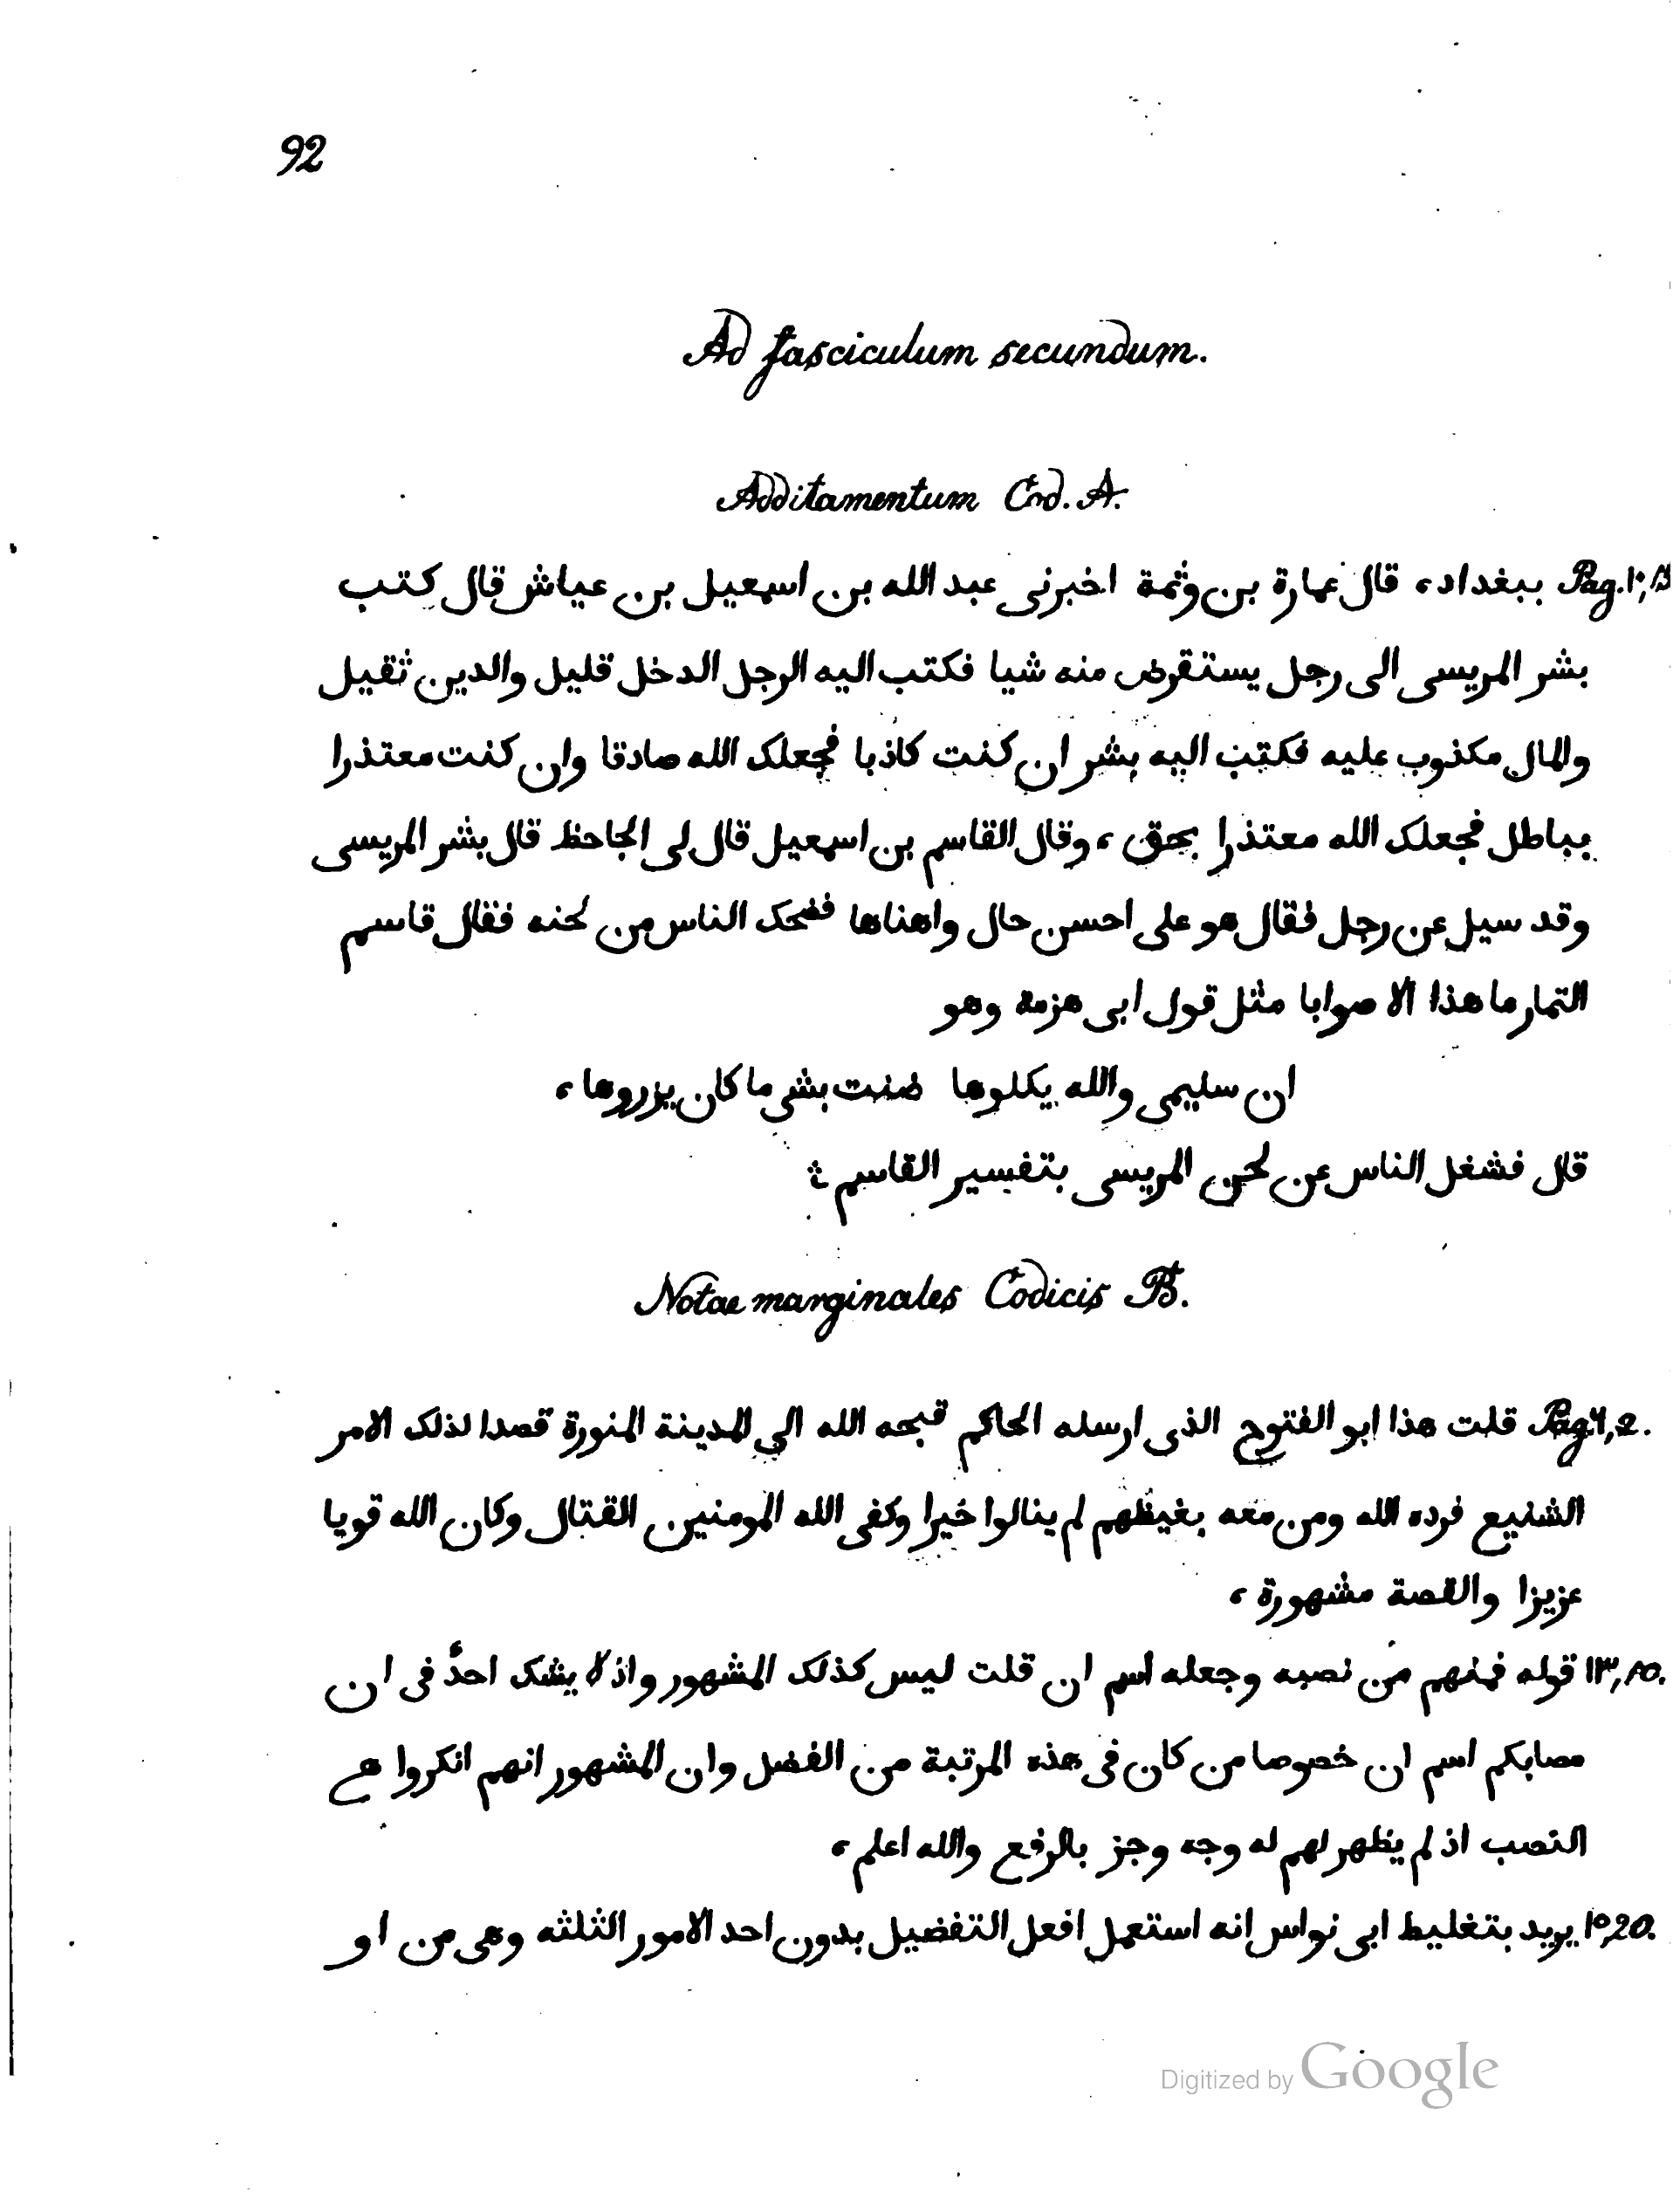 92
Ad fasciculum secundum.
Additamentum Cod. A.
Pag. ١٠, ببغداد، قال عمارة بن وثمة اخبرنى عبد الله بن اسمعيل بن عياش قال كتب
بشر المريسى الى رجل يستقرض منه شيا فكتب اليه الرجل الدخل قليل والدين ثقيل
والمال مكذوب عليه فكتب اليه بشر ان كنت كاذبا فجعلك الله صادقا وان كنت معتذرا
بباطل فجعلك الله معتذرا بحق، وقال القاسم بن اسمعيل قال لى الجاحظ قال بشر المريسى
وقد سيل عن رجل فقال هو على احسن حال واهناها فضحك الناس من لحنه فقال قاسم
التمار ما هذا الا صوابا مثل قول ابى هزمة وهو
ان سليمى والله يكلوها ضنت بشى ما كان يزروها،
قال فشغل الناس عن لحن المريسى بتفسير القاسم
Notae marginales Codicis B.
Pag. ٩,2. قلت هذا ابو الفتوح الذى ارسله الحاكم قبحه الله الى المدينة المنورة قصدا لذلك الامر
الشنيع فرده الله ومن معه بغيظهم لم ينالوا خيرا وكفى الله المومنين القتال وكان الله قويا
عزيزا والقصة مشهورة،
١٣,١٥. قوله فمنهم من نصبه وجعله اسم ان قلت ليس كذلك المشهور واذ لا يشك احدٌ فى ان
مصابكم اسم ان خصوصا من كان فى هذه المرتبة من الفضل وان المشهور انهم انكروا هى
النصب اذ لم يظهر لهم له وجه وجز بالرفع والله اعلم،
١٥,20. يريد بتغليط ابى نواس انه استعمل افعل التفضيل بدون احد الامور الثلثه وهى من او
Digitized by Google